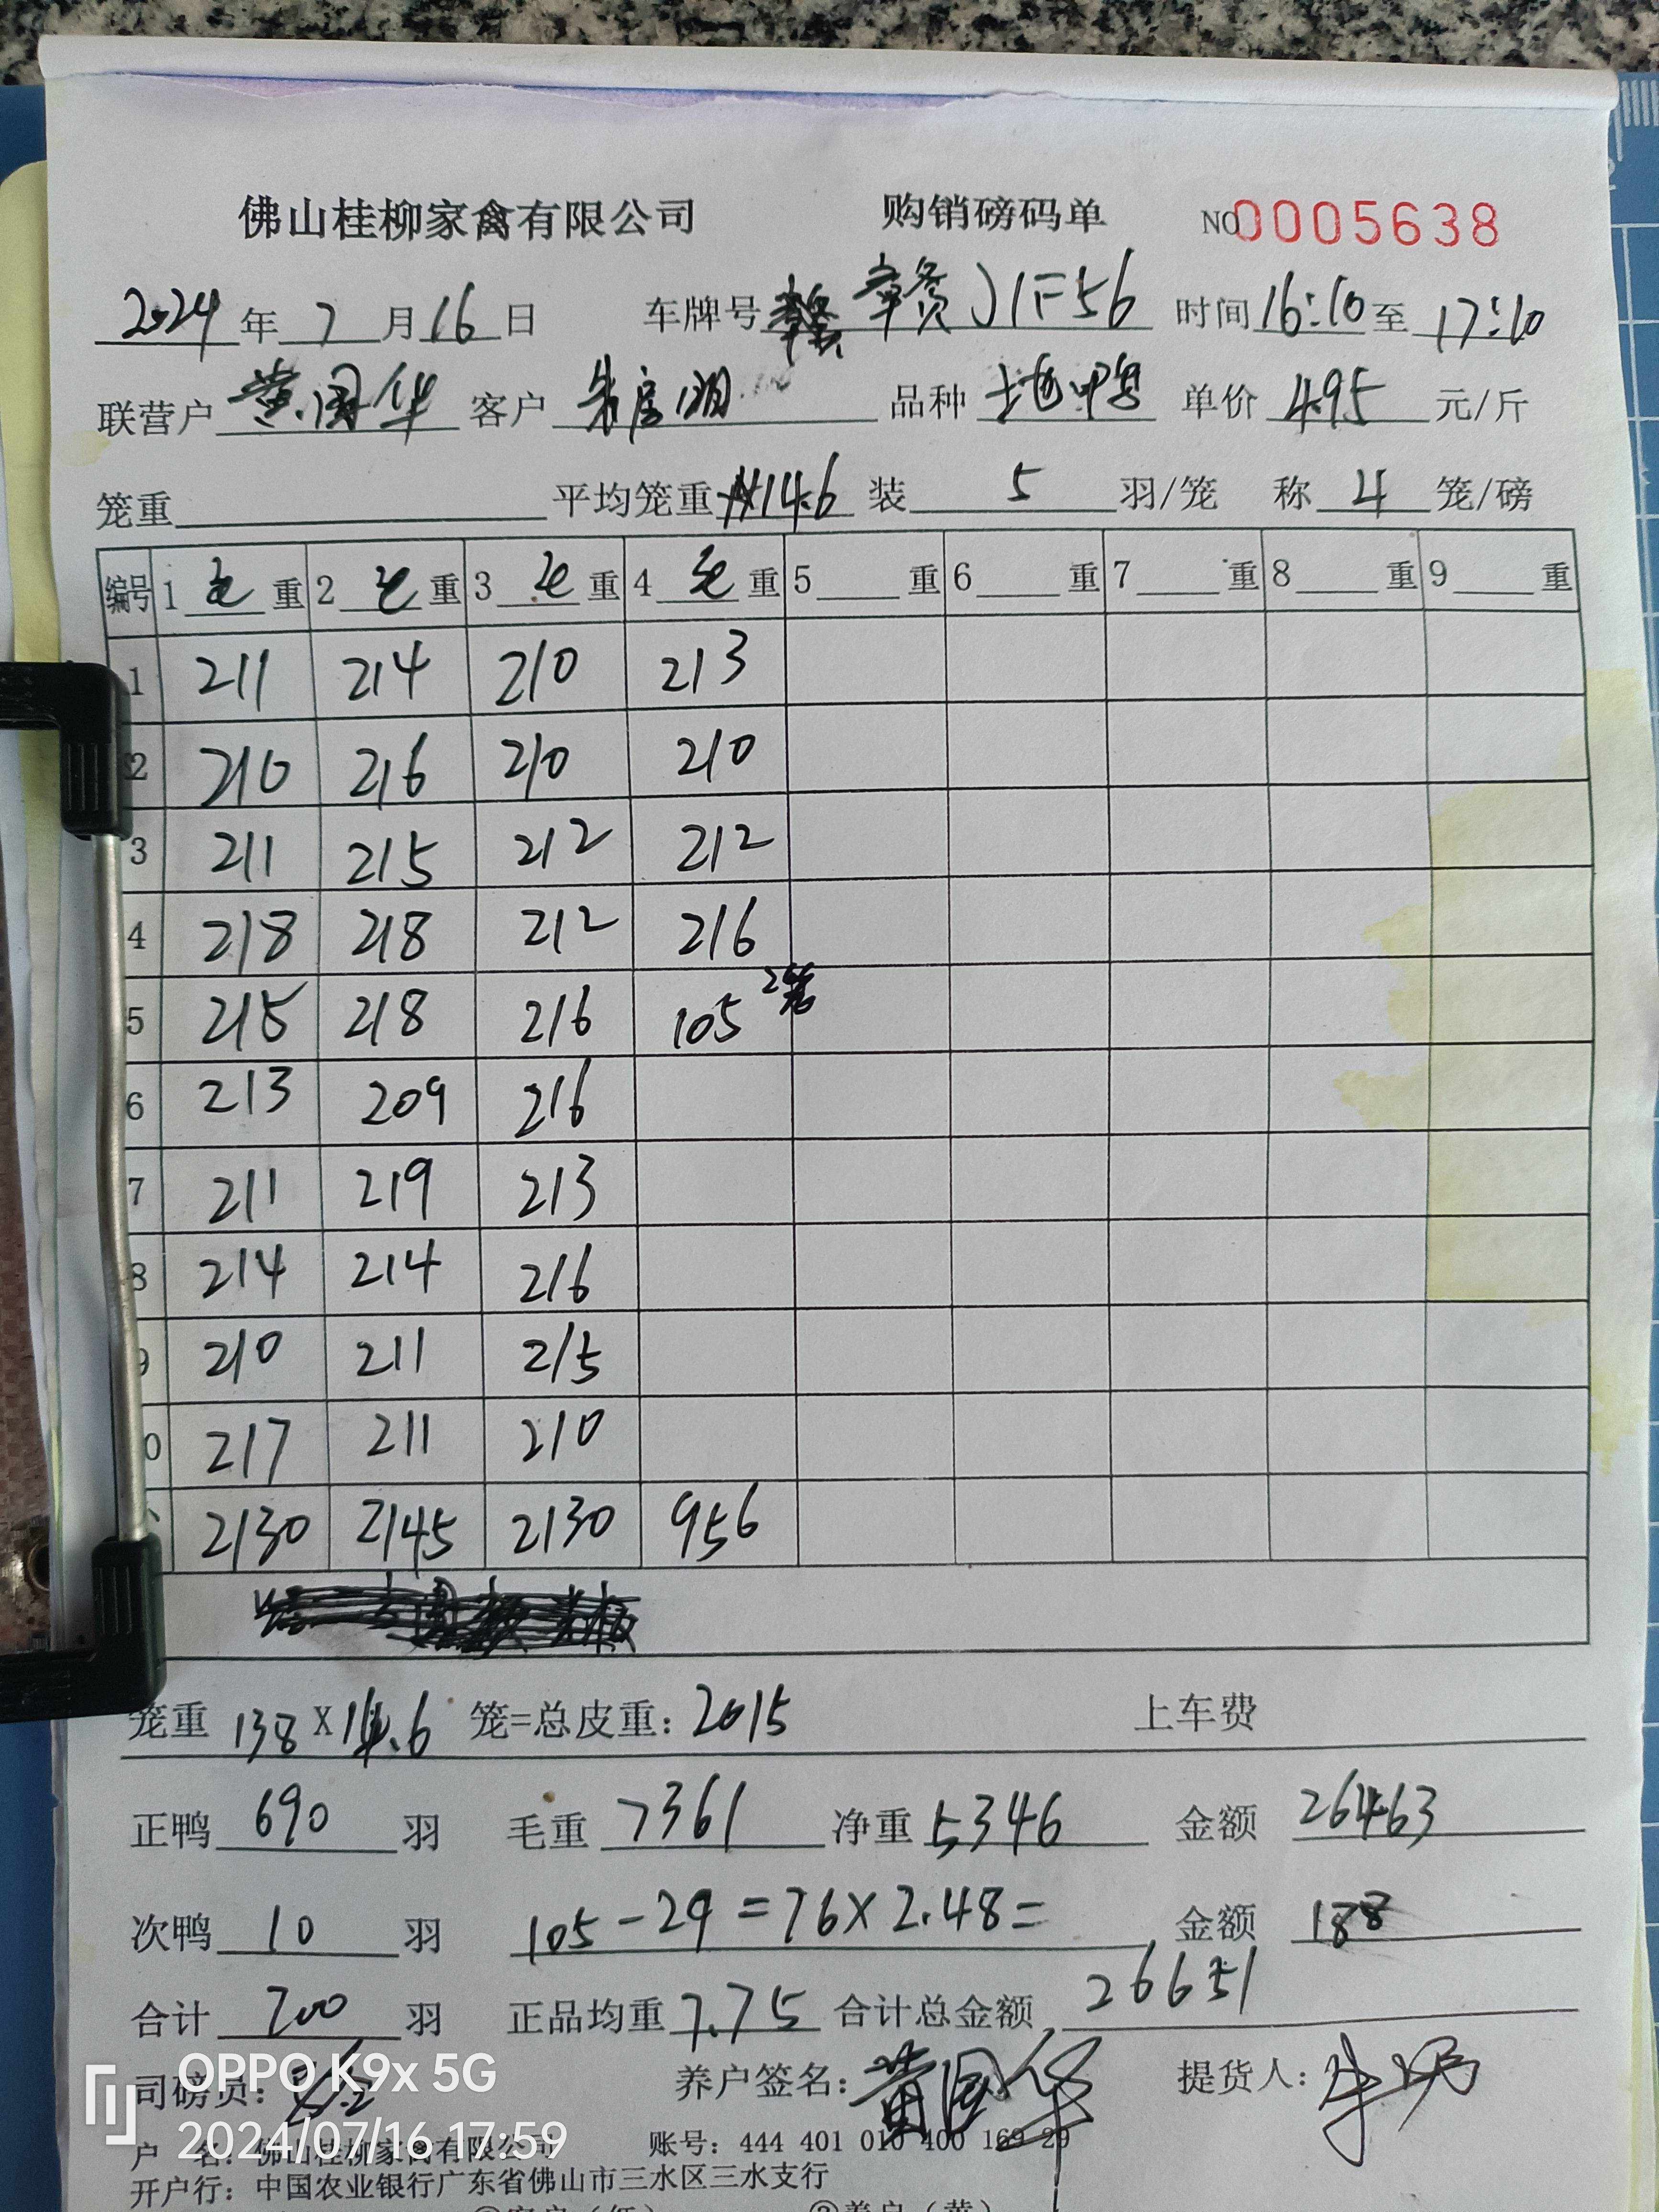 佛山桂柳家禽有限公司 购销磅码单 NO 0005638
2024 年 7 月 16 日 车牌号 赣J1F56 时间 16:10 至 17:10
联营户 黄国华 客户 品种 土地鸭 单价 4.95 元/斤
笼重 平均笼重 14.6 装 5 羽/笼 称 4 笼/磅
编号 1 毛 重 2 毛 重 3 毛 重 4 毛 重 5 重 6 重 7 重 8 重 9 重
1 211 214 210 213
2 210 216 210 210
3 211 215 212 212
4 218 218 212 216
5 215 218 216 105 2笼
6 213 209 216
7 211 219 213
8 214 214 216
9 210 211 215
0 217 211 210
2130 2145 2130 956
笼重 138 X 14.6 笼=总皮重: 2015 上车费
正鸭 690 羽 毛重 7361 净重 5346 金额 26463
次鸭 10 羽 105-29=76×2.48= 金额 188
合计 700 羽 正品均重 7.75 合计总金额 26651
司磅员: 养户签名: 黄国华 提货人:
OPPO K9x 5G
2024/07/16 17:59
户 名: 佛山桂柳家禽有限公司 账号: 444 401 010 400 169 29
开户行: 中国农业银行广东省佛山市三水区三水支行